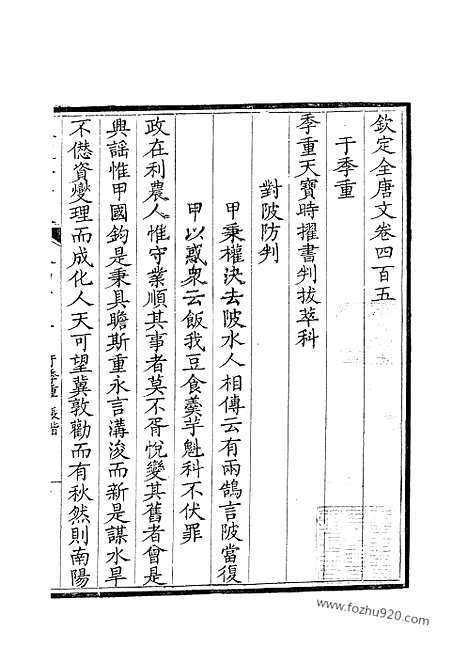 欽定全唐文卷四百五
于季重
季重天寶時擢書判拔萃科
對陂防判
甲秉權決去陂水人相傳云有兩鵠言陂當復
甲以惑衆云飯我豆食羹芋魁科不伏罪
政在利農人惟守業順其事者莫不胥悅變其舊者曾是
興謠惟甲國鈞是秉具瞻斯重永言溝浚而新是謀水旱
不僁資燮理而成化人天可望冀敦勸而有秋然則南陽
www.fozhu920.com